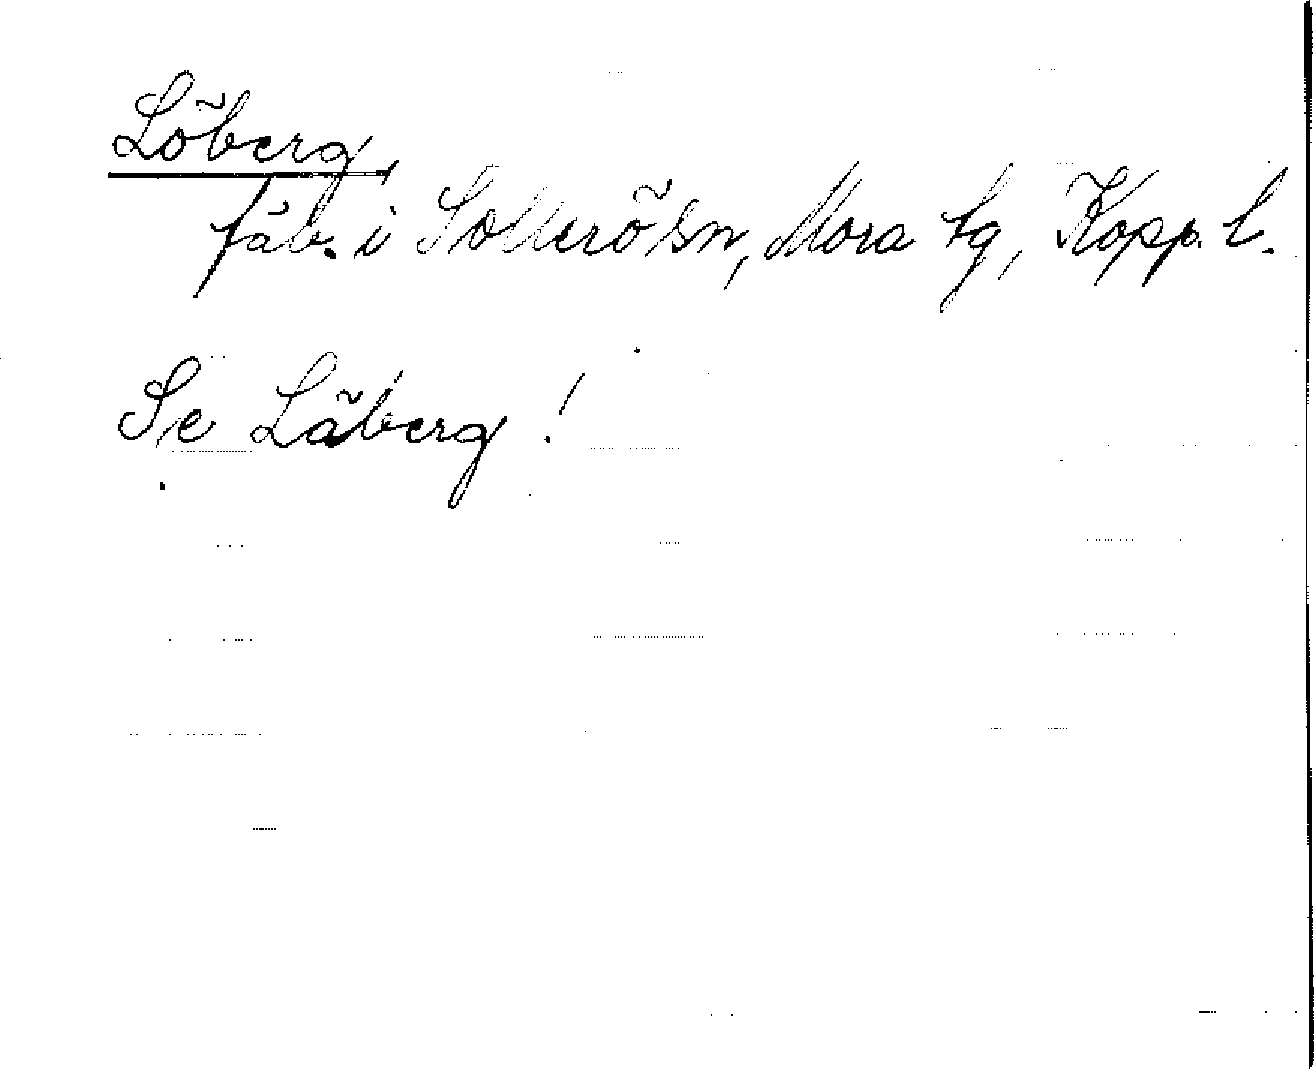 Löberg,
fäb. i Sollerö sn, Mora tg, Kopp. l.
Se Läberg!